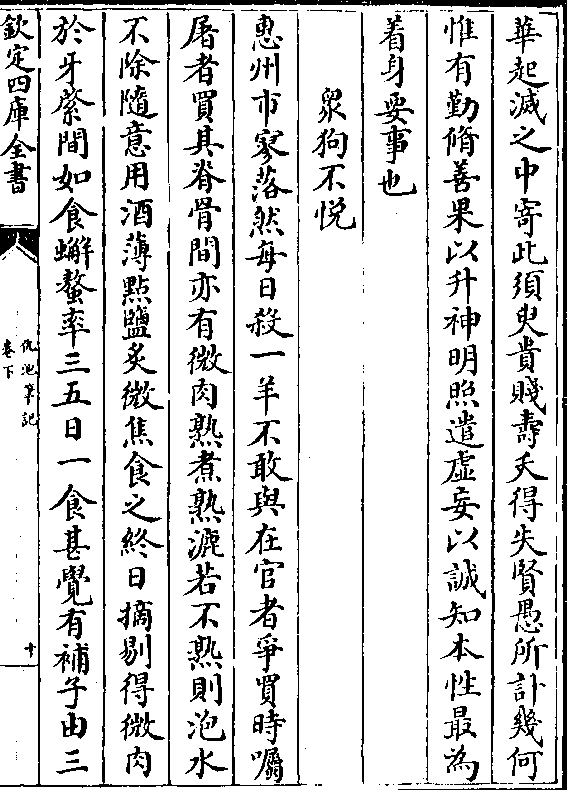 華起滅之中寄此須臾貴賤壽夭得失賢愚所計幾何
惟有勤脩善果以升神明照遣虛妄以誠知本性最為
着身要事也
衆狗不悅
惠州市寥落然每日殺一羊不敢與在官者爭買時囑
屠者買其脊骨間亦有微肉熟煮熟漉若不熟則泡水
不除隨意用酒薄點鹽炙微焦食之終日摘剔得微肉
於牙綮間如食蠏螯率三五日一食甚覺有補子由三
欽定四庫全書
仇池筆記
卷下
十